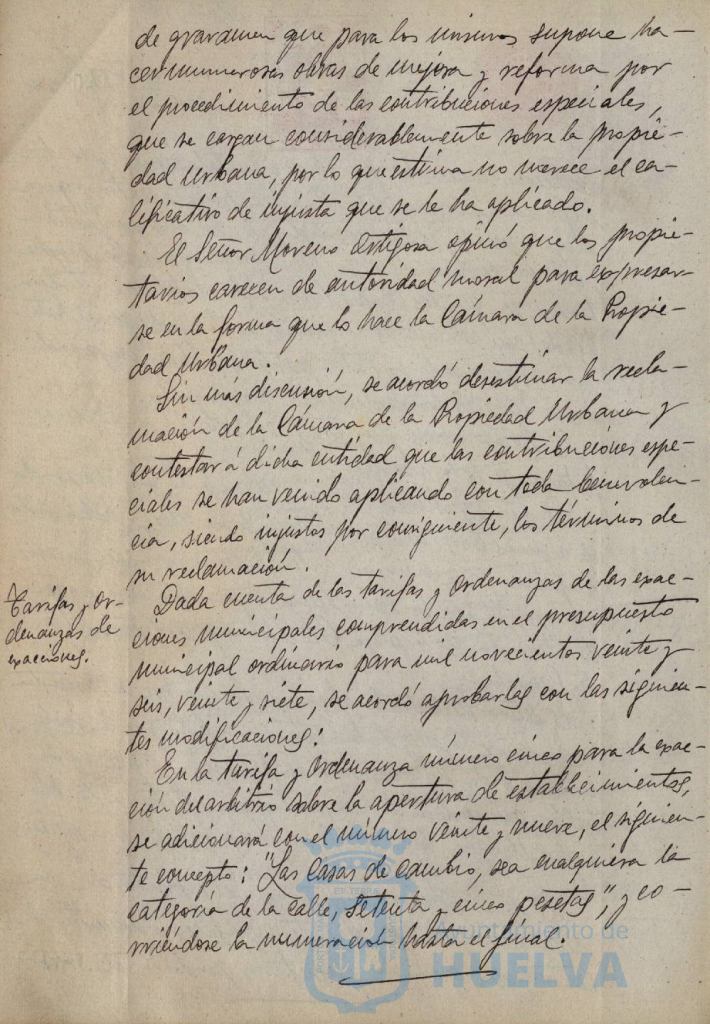 de gravamen que para los mismos supone ha-
cer numerosas obras de mejora y reforma por
el procedimiento de las contribuciones especiales,
que se cargan considerablemente sobre la propie-
dad Urbana, por lo que estima no merece el ca-
lificativo de injusta que se le ha aplicado.
El Señor Moreno Ortigosa opinó que los propie-
tarios carecen de autoridad moral para expresar-
se en la forma que lo hace la Cámara de la Propie-
dad Urbana.
Sin más discusión, se acordó desestimar la recla-
mación de la Cámara de la Propiedad Urbana y
contestar á dicha entidad que las contribuciones espe-
ciales se han venido aplicando con toda benevolen-
cia, siendo injustos por consiguiente, los términos de
su reclamación.
Tarifas y Or-
denanzas de
exacciones.
Dada cuenta de las tarifas y Ordenanzas de las exac-
ciones municipales comprendidas en el presupuesto
municipal ordinario para mil novecientos veinte y
seis, veinte y siete, se acordó aprobarlas con las siguien-
tes modificaciones:
En la tarifa y Ordenanza número cinco para la exac-
ción del arbitrio sobre la apertura de establecimientos,
se adicionará con el número veinte y nueve, el siguien-
te concepto: "Las Casas de Cambio, sea cualquiera la
categoría de la calle, setenta y cinco pesetas", y co-
rriéndose la numeración hasta el final.
Ayuntamiento de
HUELVA